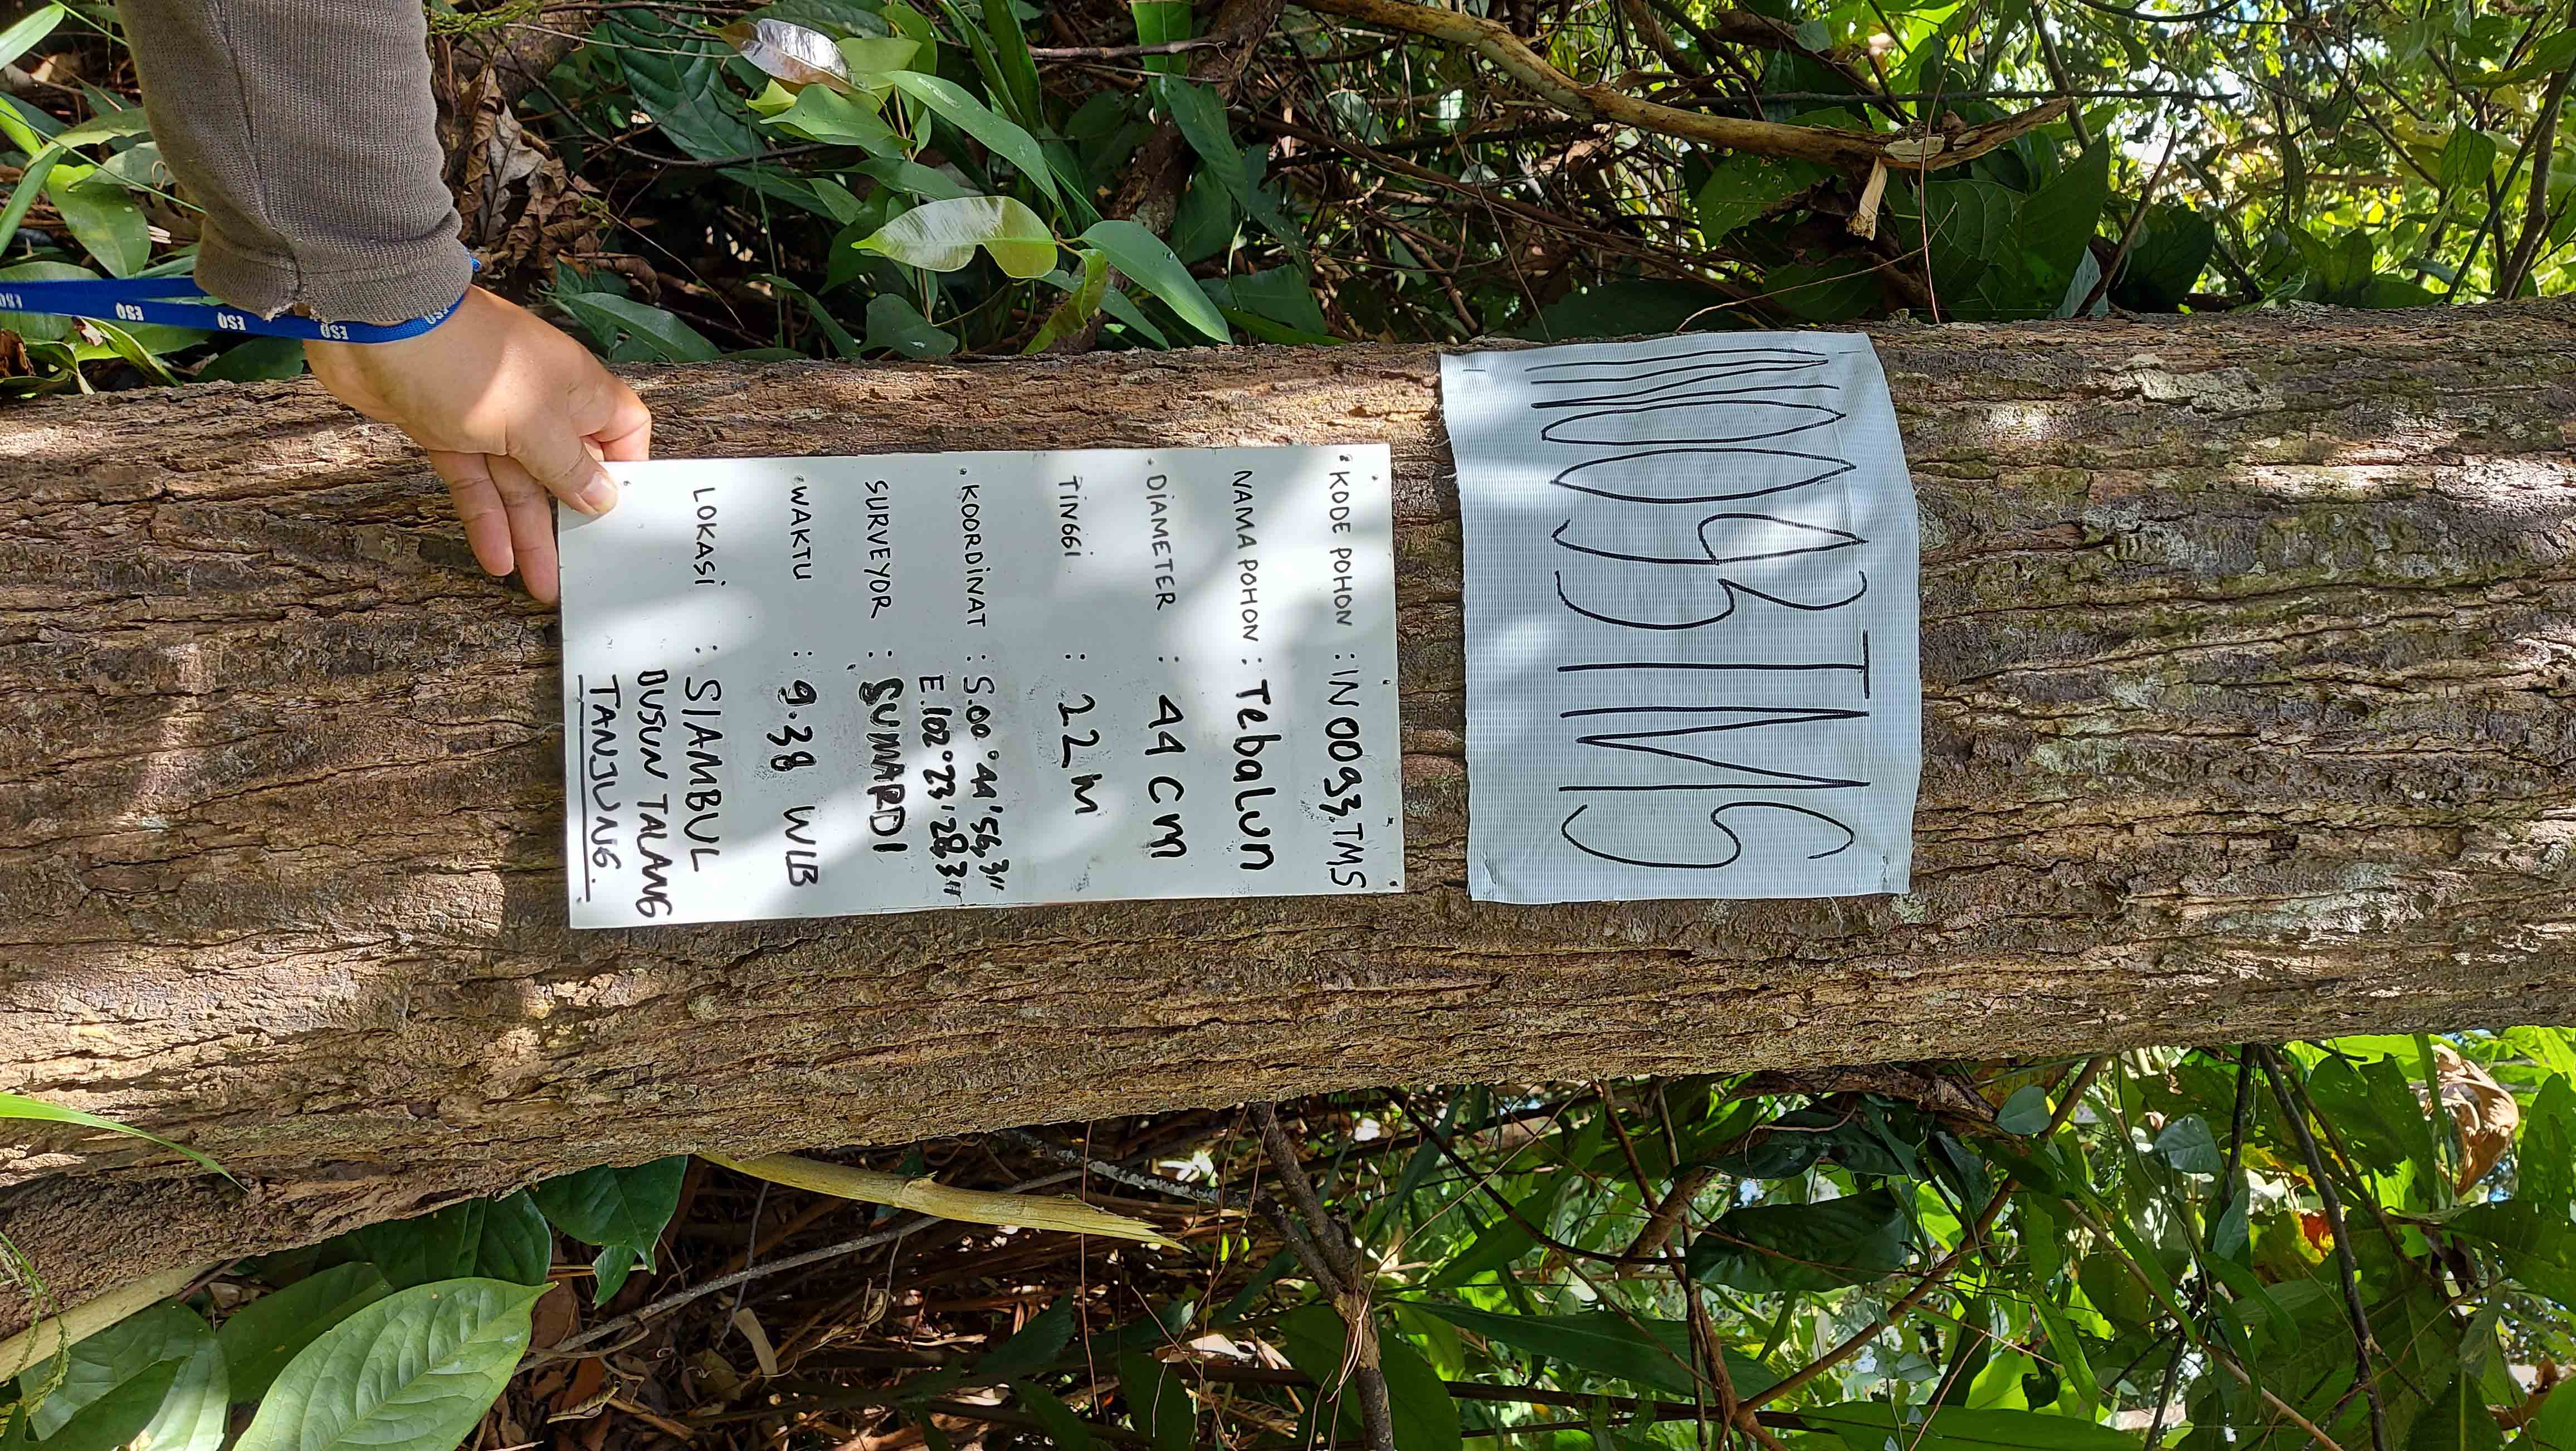 IN0093TMS
KODE POHON : IN 0093.TMS
NAMA POHON : Tebalun
DIAMETER : 44 cm
TINGGI : 22 m
KOORDINAT : S.00°44'56,3"
E.102°23'28,3"
SURVEYOR : SUMARDI
WAKTU : 9.38 WIB
LOKASI : SIAMBUL
DUSUN TALANG
TANJUNG.
ESQ
ESQ
ESQ
ESQ